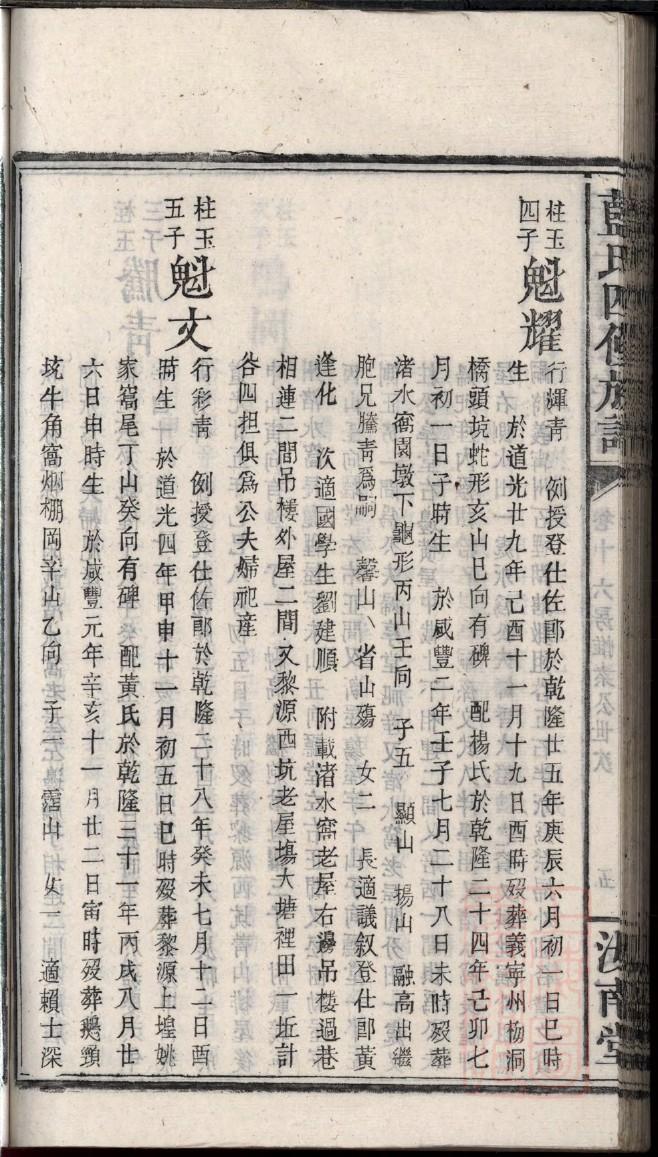 藍氏四修族譜
卷十六房惟素公世次
五
汝南堂
柱玉
四子
魁耀
行輝青 例授登仕佐郎於乾隆廿五年庚辰六月初一日巳時
生 於道光廿九年己酉十一月十九日酉時歿葬義寧州杨洞
橋頭坑蛇形亥山巳向有碑 配楊氏於乾隆二十四年己卯七
月初一日子時生 於咸豐二年壬子七月二十八日未時歿葬
渚水窩園墩下龜形丙山壬向 子五 顯山 揚山 融高出繼
胞兄騰青爲嗣 馨山 省山殤 女二 長適議叙登仕郎黃
逢化 次適國學生劉建順 附載渚水窩老屋右邊吊樓過巷
相蓮二間吊樓外屋二間又黎源西坑老屋塲大塘裡田一坵計
谷四担俱爲公夫婦祀産
柱玉
五子
魁文
行彩青 例授登仕佐郎於乾隆二十八年癸未七月十二日酉
時生 於道光四年甲申十一月初五日巳時歿葬黎源上埕姚
家窩尾丁山癸向有碑 配黃氏於乾隆三十一年丙戌八月廿
六日申時生 於咸豐元年辛亥十一月廿二日寅時歿葬鵝頸
坑牛角窩烟棚岡辛山乙向 子一 霑山 女二 適賴士深